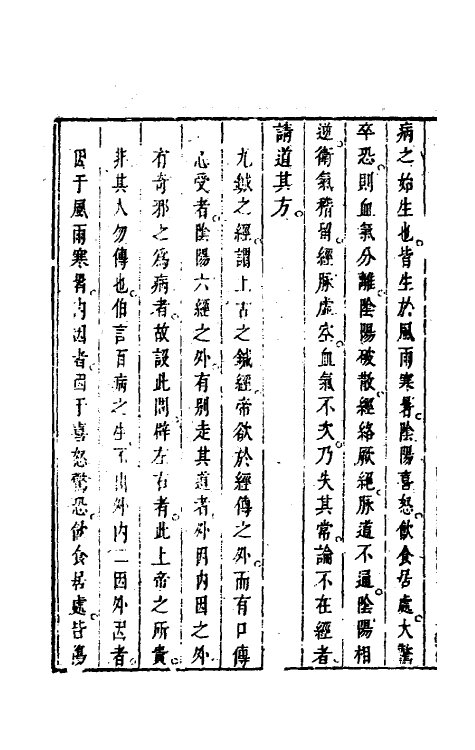 病之始生也皆生於風雨寒暑陰陽喜怒飲食居處大驚
卒恐則血氣分離陰陽破散經絡厥絕脉道不通陰陽相
逆衛氣稽留經脉虛空血氣不次乃失其常論不在經者
請道其方
九鍼之經謂上古之鍼經帝欲於經傳之外而有口傳
心受者陰陽六經之外有别走其道者外因内因之外
有奇邪之為病者故設此問辟左右者此上帝之所貴
非其人勿傳也伯言百病之生不出外内二因外因者
因于風雨寒暑内因者因于喜怒驚恐飲食居處皆傷